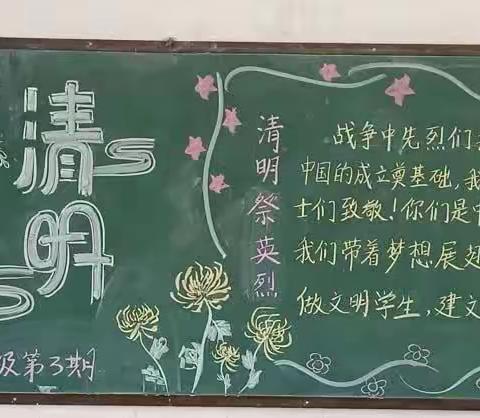 清明
级第3期
清明祭英烈
战争中先烈们
中国的成立奠基础，我
士们致敬！你们是中
我们带着梦想展翅
做文明学生，建文